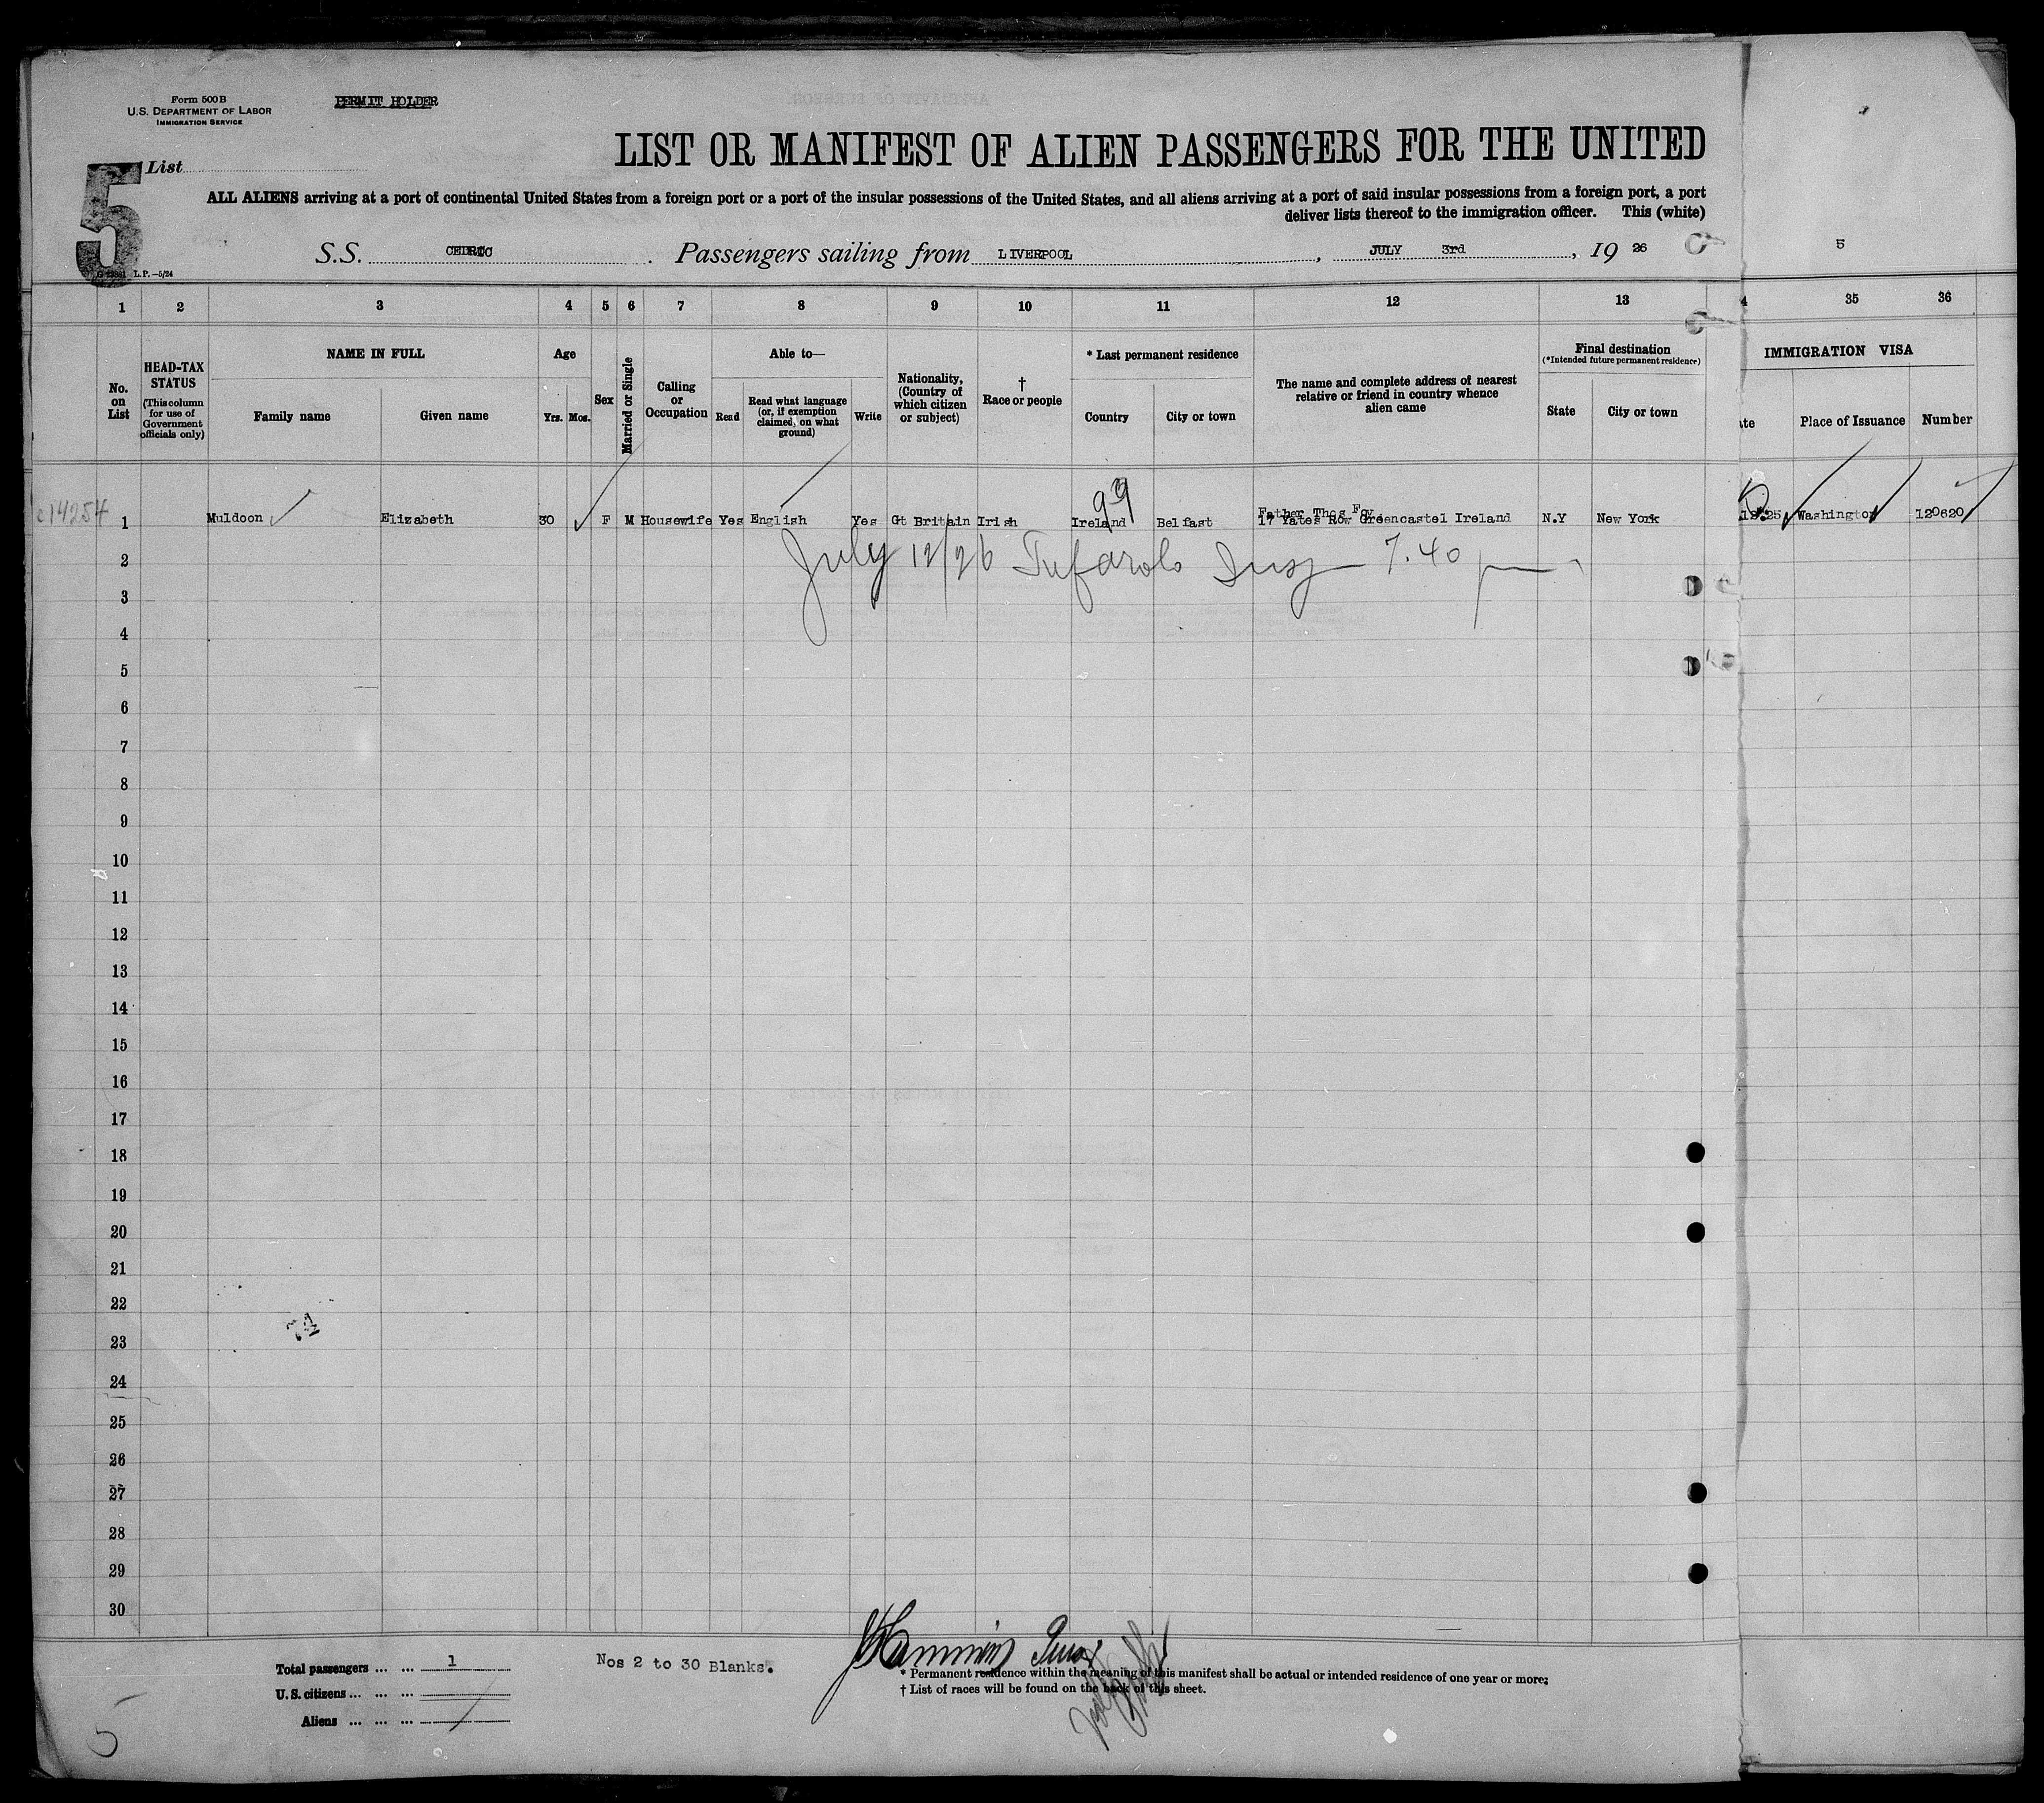 Form 500B
U.S. DEPARTMENT OF LABOR
IMMIGRATION SERVICE
PERMIT HOLDER
5
List
LIST OR MANIFEST OF ALIEN PASSENGERS FOR THE UNITED
ALL ALIENS arriving at a port of continental United States from a foreign port or a port of the insular possessions of the United States, and all aliens arriving at a port of said insular possessions from a foreign port, a port
deliver lists thereof to the immigration officer. This (white)
S.S. CEDRIC . Passengers sailing from LIVERPOOL, JULY 3rd, 19 26
5
L.P.—5/24
1 2 3 4 5 6 7 8 9 10 11 12 13 4 35 36
No. on List
HEAD-TAX STATUS (This column for use of Government officials only)
NAME IN FULL
Family name
Given name
Age
Yrs. Mos.
Sex
Married or Single
Calling or Occupation
Able to—
Read
Read what language (or, if exemption claimed, on what ground)
Write
Nationality, (Country of which citizen or subject)
† Race or people
* Last permanent residence
Country
City or town
The name and complete address of nearest relative or friend in country whence alien came
Final destination
(*Intended future permanent residence)
State
City or town
IMMIGRATION VISA
te
Place of Issuance
Number
c14254
99
Father Thos Foy
1 Muldoon Elizabeth 30 F M Housewife Yes English Yes Gt Britain Irish Ireland Belfast 17 Yates Row Greencastel Ireland N.Y New York 25 Washington 120620
July 12/26 Insp 7.40 pm
2
3
4
5
6
7
8
9
10
11
12
13
14
15
16
17
18
19
20
21
22
23
24
25
26
27
28
29
30
Total passengers ... ... 1
U.S. citizens ... ... ...
Aliens ... ... ... /
Nos 2 to 30 Blanks.
* Permanent residence within the meaning of this manifest shall be actual or intended residence of one year or more;
† List of races will be found on the back of this sheet.
5